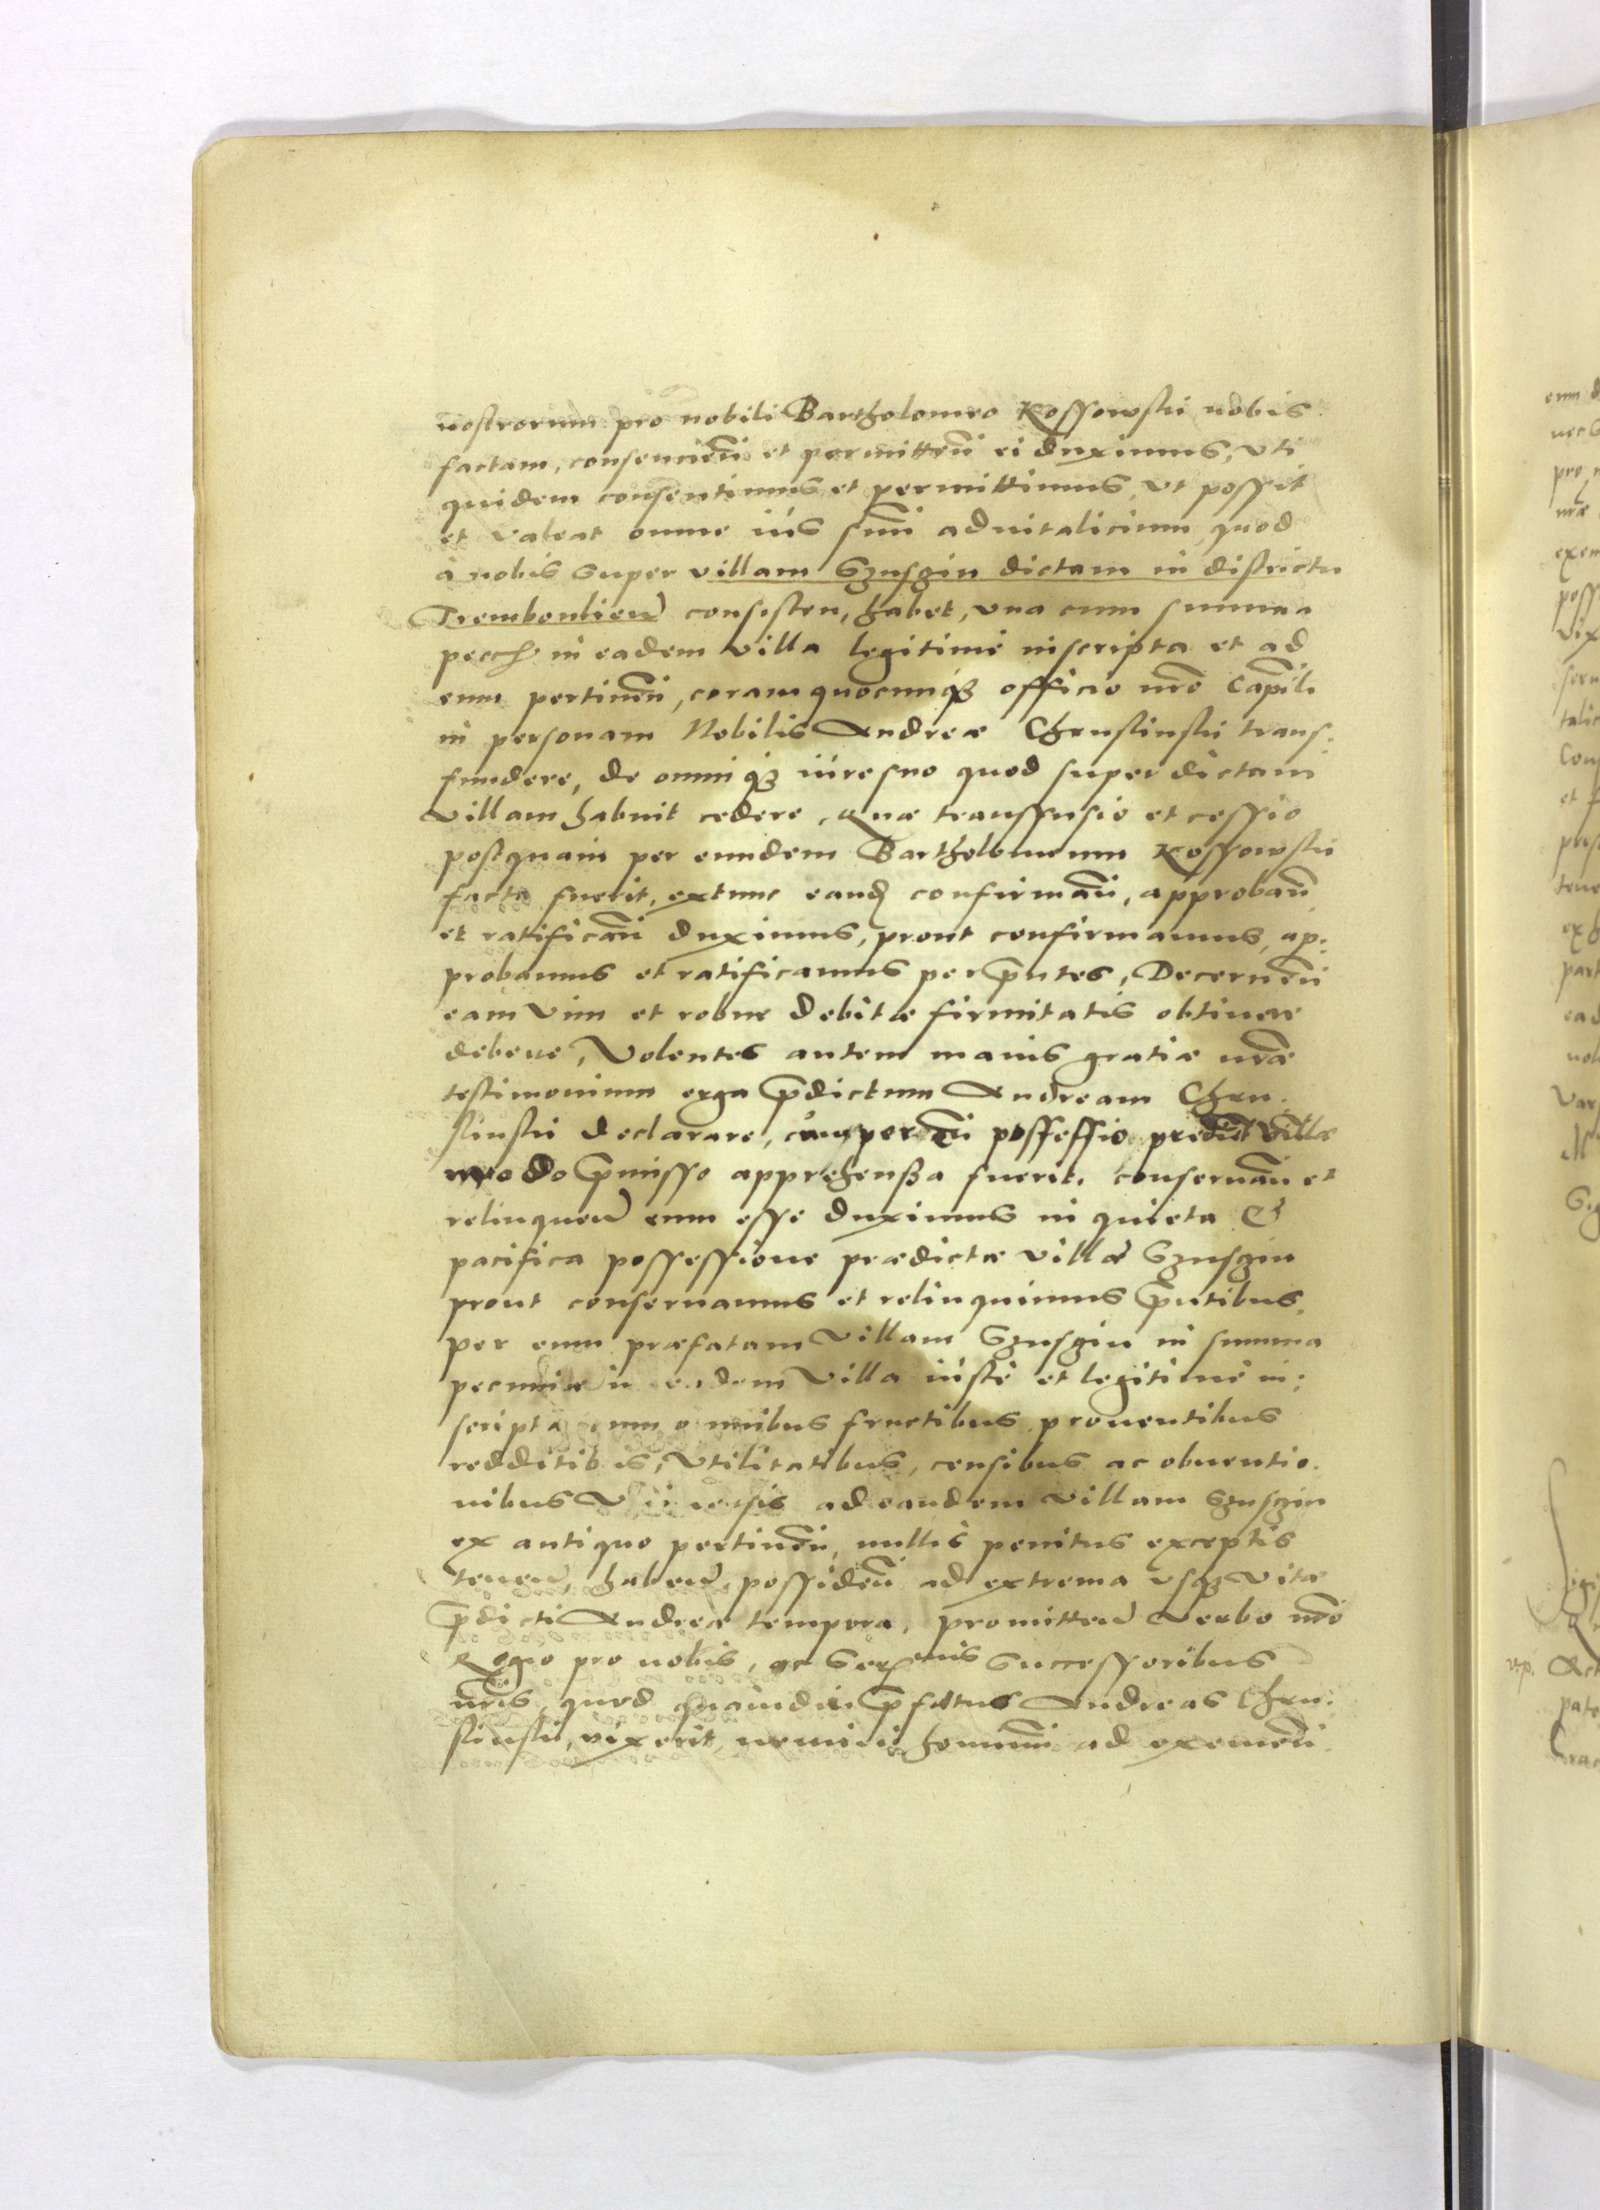 nostrorum pro nobili Bartholomeo Kossowskii nobis
factam, consencien̄ et permitten̄ ei duximus, vti
quidem consentimus et permittimus, vt possit
et valeat omne ius suū aduitalicium, quod
à nobis super villam Szusgin dictam in districtu
Tremboulien̄ consisten, habet, vna cum summa
pecch in eadem villa legitimè inscripta et ad
eum pertinen̄, coram quocunq3 officio nr̄o Cap̄ili
in personam Nobilis Andreæ Chrustinskii trans:
fundere, de omniq3 iure suo quod super dictam
villam habuit cedere, Quæ transfusio et cessio
postquam per eundem Bartholomeum Kossowskii
facta fuerit, extunc eand confirman̄, approban̄
et ratifican̄ duximus, prout confirmamus, ap:
probamus et ratificamus per p̄ntes, Decernen̄
eam vim et robur debitæ firmitatis obtinere
debere, Volentes autem maius gratiæ nr̄æ
testimonium erga p̄dictum Andream Chru:
stinskii declarare, cum per eū possessio predict villæ
modo p̄misso apprehensa fuerit, conseruan̄ et
relinquen̄ eum esse duximus in quieta &
pacifica possessione prædictæ villæ Szusgin
prout conseruamus et relinquimus p̄ntibus,
per eum præfatam Villam Szusgin in summa
pecuniæ in eadem Villa iustè et legitimè in:
scripta cum omnibus fructibus prouentibus
redditibus, Vtilitatibus, censibus ac obuentio:
nibus Vniuersis ad eandem villam Szusgin
ex antiquo pertinen̄, nullis penitus exceptis
tenen̄, haben̄, possiden̄ ad extrema vsq3 vitæ
p̄dicti Andreæ tempora, promitten̄ Verbo nr̄o
Regio pro nobis, ac Serenis Successoribus
nr̄is, quod quamdiu p̄fatus Andreas Chru:
stinskii, vixerit, nemini hominū ad eximen̄